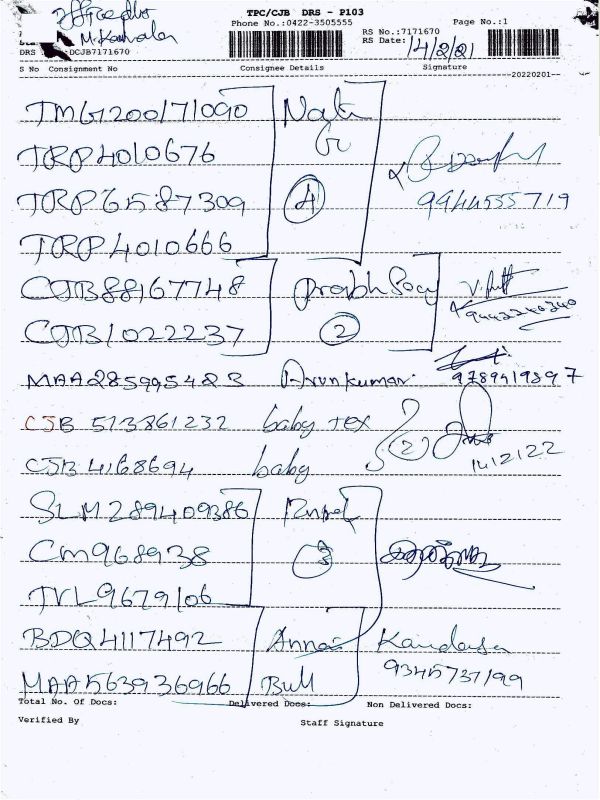 TPC/CJB DRS - P103
Phone No.:0422-3505555 Page No.:1
RS No.:7171670
RS Date: 14/2/21
DRS DCJB7171670
S No Consignment No Consignee Details Signature
20220201
TMG200171090
TRP4010676
TRP6587309 4 9944555719
TRP4010666
CJB88167748
CJB1022237 2 9442240340
MAA285995423 Arunkumar 9789419897
CJB 513861232 baby tex 2
CJB 4168694 baby 14/2/22
SLM289409386
CM968938 3
TVL9679106
BDQ4117492 Annai
MAA563936966 Bull 9345737199
Total No. Of Docs: Delivered Docs: Non Delivered Docs:
Verified By Staff Signature